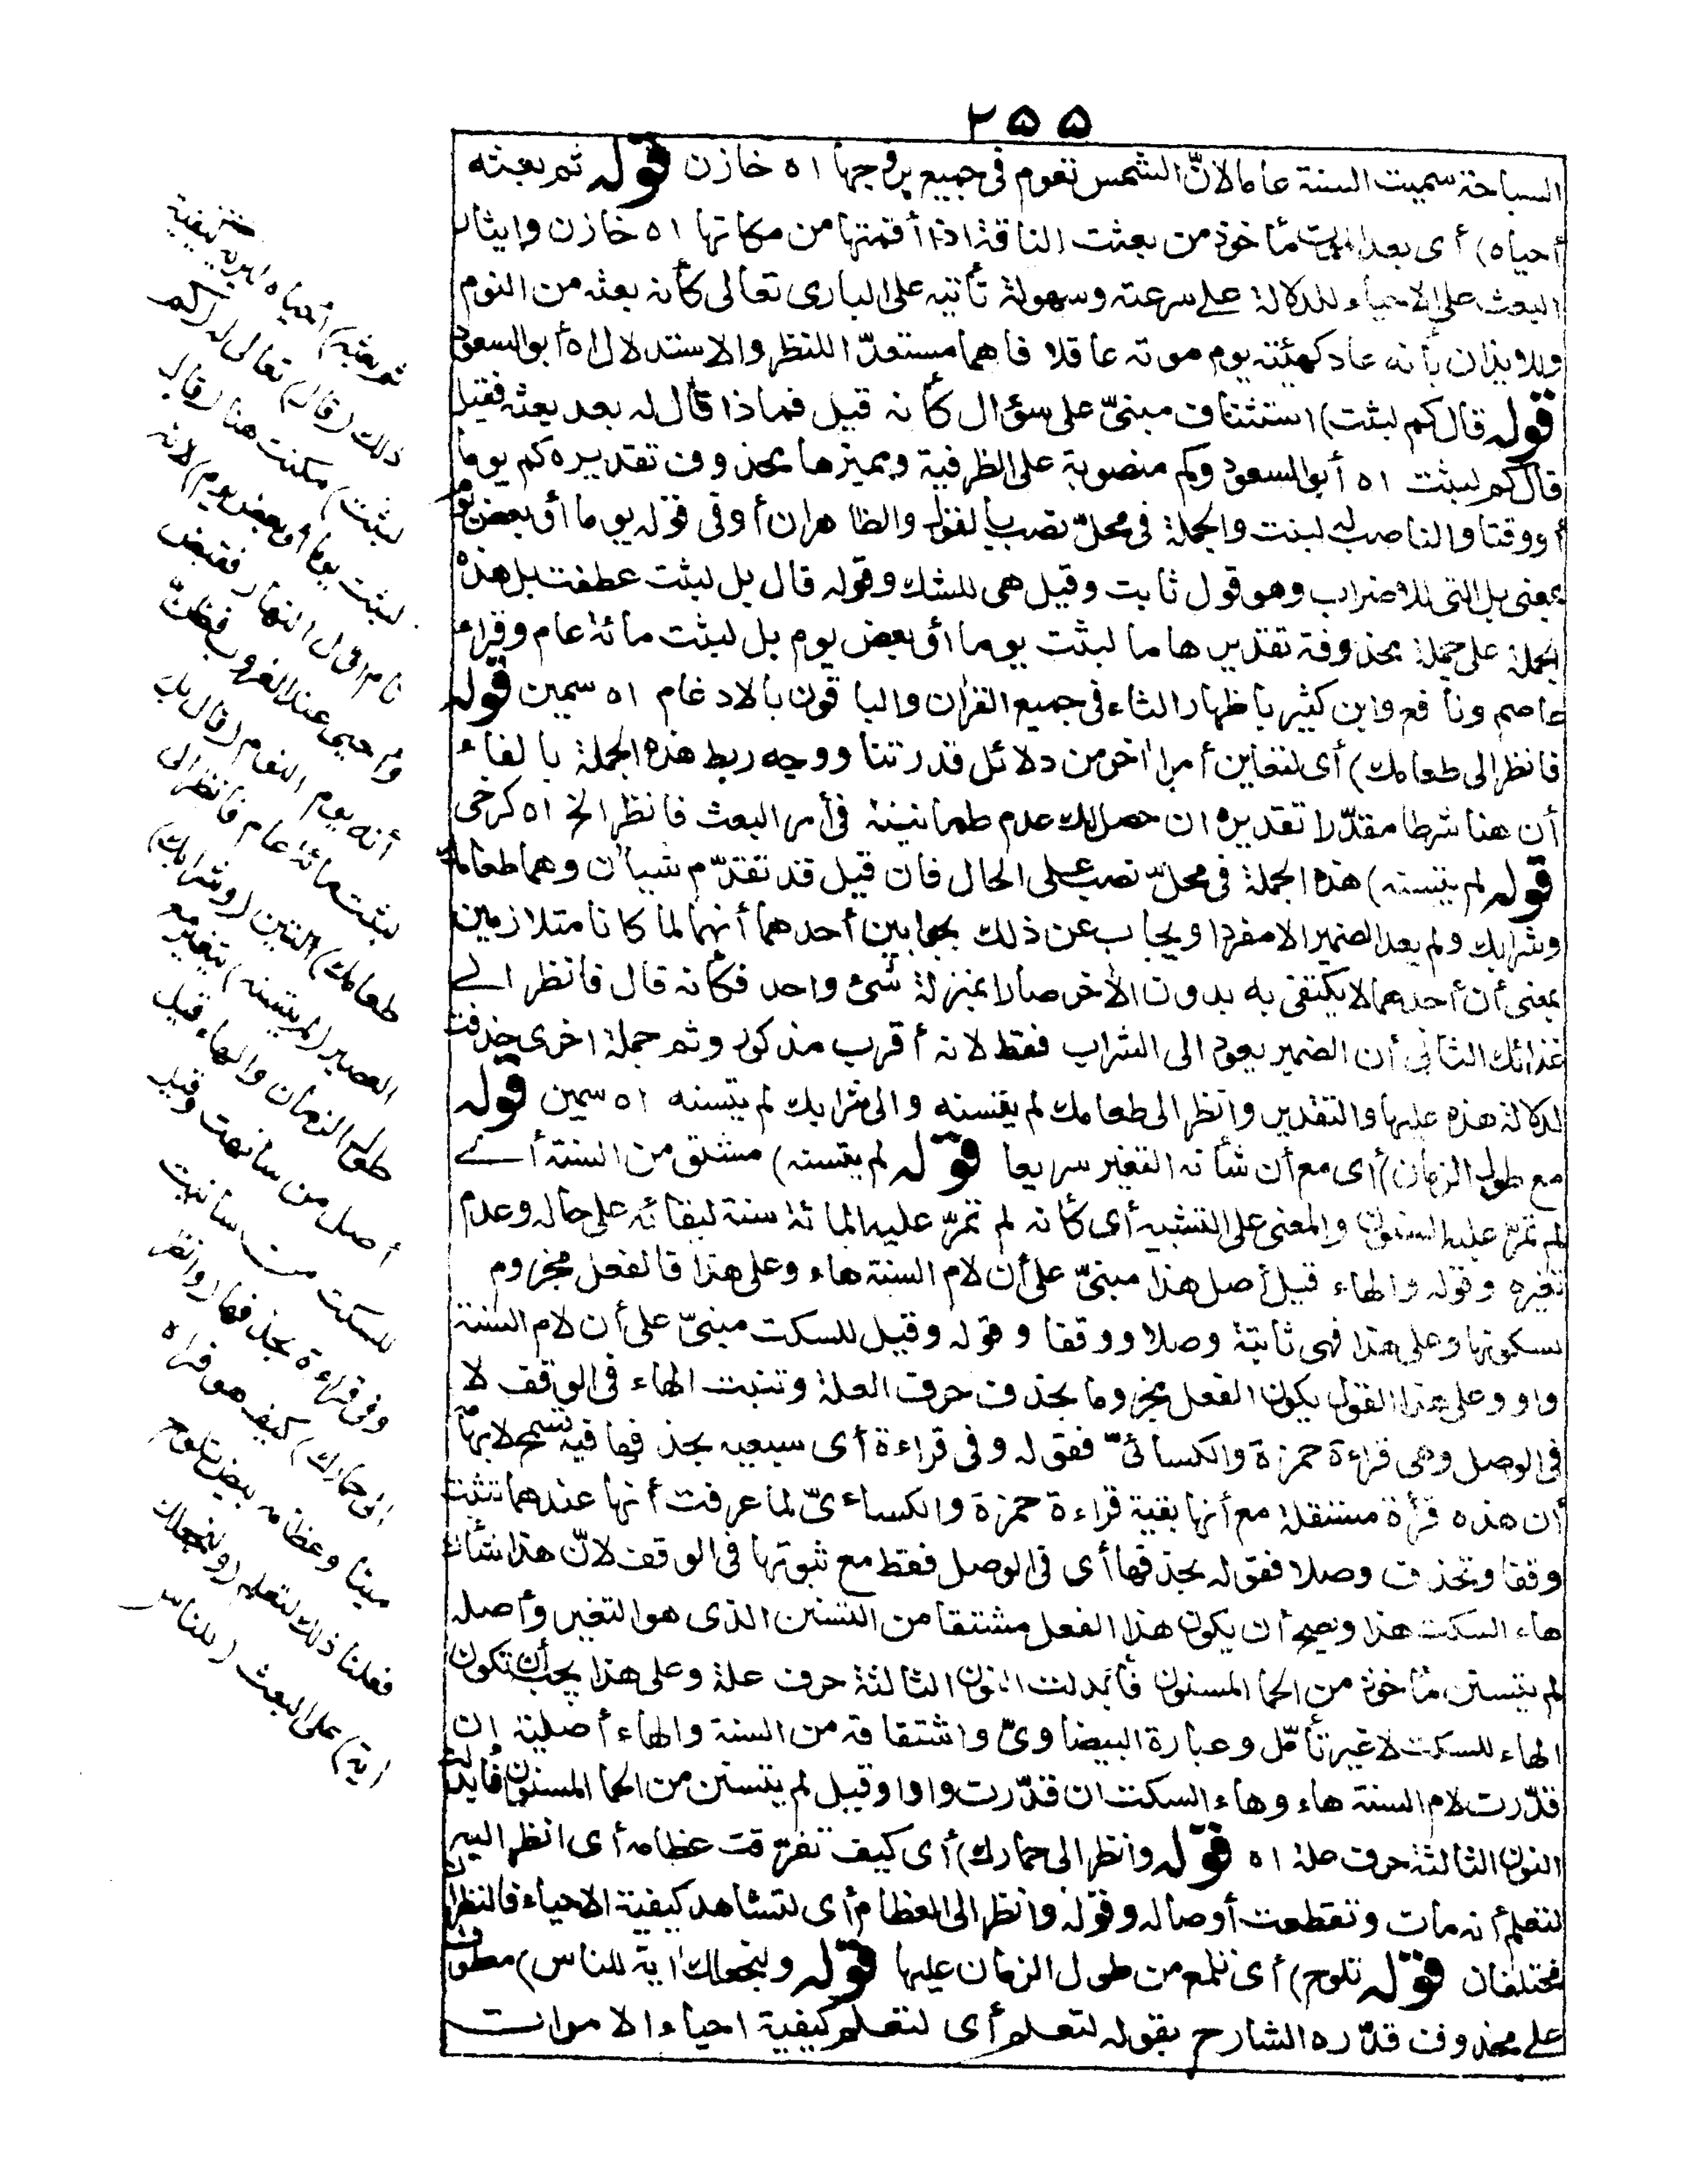 ٢٥٥
السباحة سميت السنة عاما لانّ الشمس تعوم فى جميع بروجها اه خازن قوله ثم بعثه
أحياه) أى بعد الموت مأخوذ من بعثت الناقة اذا أقمتها من مكانها اه خازن وايثار
البعث على الاحياء للدلالة على سرعته وسهولة تأتيه على البارى تعالى كأنه بعثه من النوم
وللايذان بأنه عاد كهيئته يوم موته عاقلا فاهما مستعدّا للنظر والاستدلال اه أبو السعود
قوله قال كم لبثت) استئناف مبنىّ على سؤال كأنه قيل فماذا قال له بعد بعثه فقيل
قال كم لبثت اه أبو السعود وكم منصوبة على الظرفية ومميزها محذوف تقديره كم يوما
أو وقتا والناصب له لبثت والجملة فى محلّ نصب بالقول والظاهر ان أو فى قوله يوما أو بعض يوم
بمعنى بل التى للاضراب وهو قول ثابت وقيل هى للشك وقوله قال بل لبثت عطفت بل هذه
الجملة على جملة محذوفة تقديرها ما لبثت يوما أو بعض يوم بل لبثت مائة عام وقراء
عاصم ونافع وابن كثير باظهار الثاء فى جميع القران والباقون بالادغام اه سمين قوله
فانظر الى طعامك) أى لتعاين أمرا اخر من دلائل قدرتنا ووجه ربط هذه الجملة بالفاء
أن هنا شرطا مقدّرا تقديره ان حصل لك عدم طمانينة فى أمر البعث فانظر الخ اه كرخى
قوله لم يتسنه) هذه الجملة فى محلّ نصب على الحال فان قيل قد تقدّم شيأن وهما طعامك
وشرابك ولم يعد الضمير الا مفردا ويجاب عن ذلك بجوابين أحدهما أنهما لما كانا متلازمين
بمعنى أن أحدهما لا يكتفى به بدون الاخر صارا بمنزلة شئ واحد فكأنه قال فانظر الى
غذائك الثانى أن الضمير يعود الى الشراب فقط لانه أقرب مذكور وثم جملة اخرى حذفت
لدلالة هذه عليها والتقدير وانظر الى طعامك لم يتسنه والى شرابك لم يتسنه اه سمين قوله
مع طول الزمان) أى مع أن شأنه التغير سريعا قوله لم يتسنه) مشتق من السنة أى
لم تمرّ عليه السنون والمعنى على التشبيه أى كأنه لم تمرّ عليه المائة سنة لبقائه على حاله وعدم
تغيره وقوله والهاء قيل أصل هذا مبنىّ على أن لام السنة هاء وعلى هذا فالفعل مجزوم
بسكونها وعلى هذا فهى ثابتة وصلا ووقفا وقوله وقيل للسكت مبنىّ على أن لام السنة
واو وعلى هذا القول يكون الفعل مجزوما بحذف حرف العلة وتثبت الهاء فى الوقف لا
فى الوصل وهى قراءة حمزة والكسائىّ فقوله وفى قراءة أى سبعيه بحذفها فيه تسمح لايهامه
أن هذه قرأة مستقلة مع أنها بقية قراءة حمزة والكساءىّ لما عرفت أنها عندهما تثبت
وقفا وتحذف وصلا فقوله بحذفها أى فى الوصل فقط مع ثبوتها فى الوقف لانّ هذا شأن
هاء السكت هذا ويصح أن يكون هذا الفعل مشتقا من التسنن الذى هو التغير وأصله
لم يتسنن مأخوذ من الحما المسنون فأبدلت النون الثالثة حرف علة وعلى هذا يجب أن تكون
الهاء للسكت لا غير تأمّل وعبارة البيضاوىّ واشتقاقه من السنة والهاء أصلية إن
قدّرت لام السنة هاء وهاء السكت ان قدّرت واوا وقيل لم يتسنن من الحما المسنون فأبدلت
النون الثالثة حرف علة اه قوله وانظر الى حمارك) أى كيف تفرّقت عظامه أى انظر اليه
لتعلم أنه مات وتقطعت أوصاله وقوله وانظر الى العظام أى لتشاهد كيفية الاحياء فالنظران
مختلفان قوله تلوح) أى تلمع من طول الزمان عليها قوله ولنجعلك اية للناس) معطوف
على محذوف قدّره الشارح بقوله لتعلم أى لتعلم كيفية احياء الاموات
ثم بعثه) أحياه ليريه كيفية
ذلك (قال) تعالى له (كم
لبثت) مكثت هنا (قال
لبثت يوما أو بعض يوم) لانه
نام اول النهار فقبض
وأحيى عند الغروب فظنّ
أنه يوم النوم (قال بل
لبثت مائة عام فانظر الى
طعامك) التين (وشرابك)
العصير (لم يتسنه) يتغير مع
طول الزمان والهاء قيل
أصل من سانهت وقيل
للسكت من سانيت
وفى قراءة بحذفها (وانظر
الى حمارك) كيف هو فراه
ميتا وعظامه بيض تلوح
فعلنا ذلك لتعلم (ولنجعلك
اية) على البعث (للناس